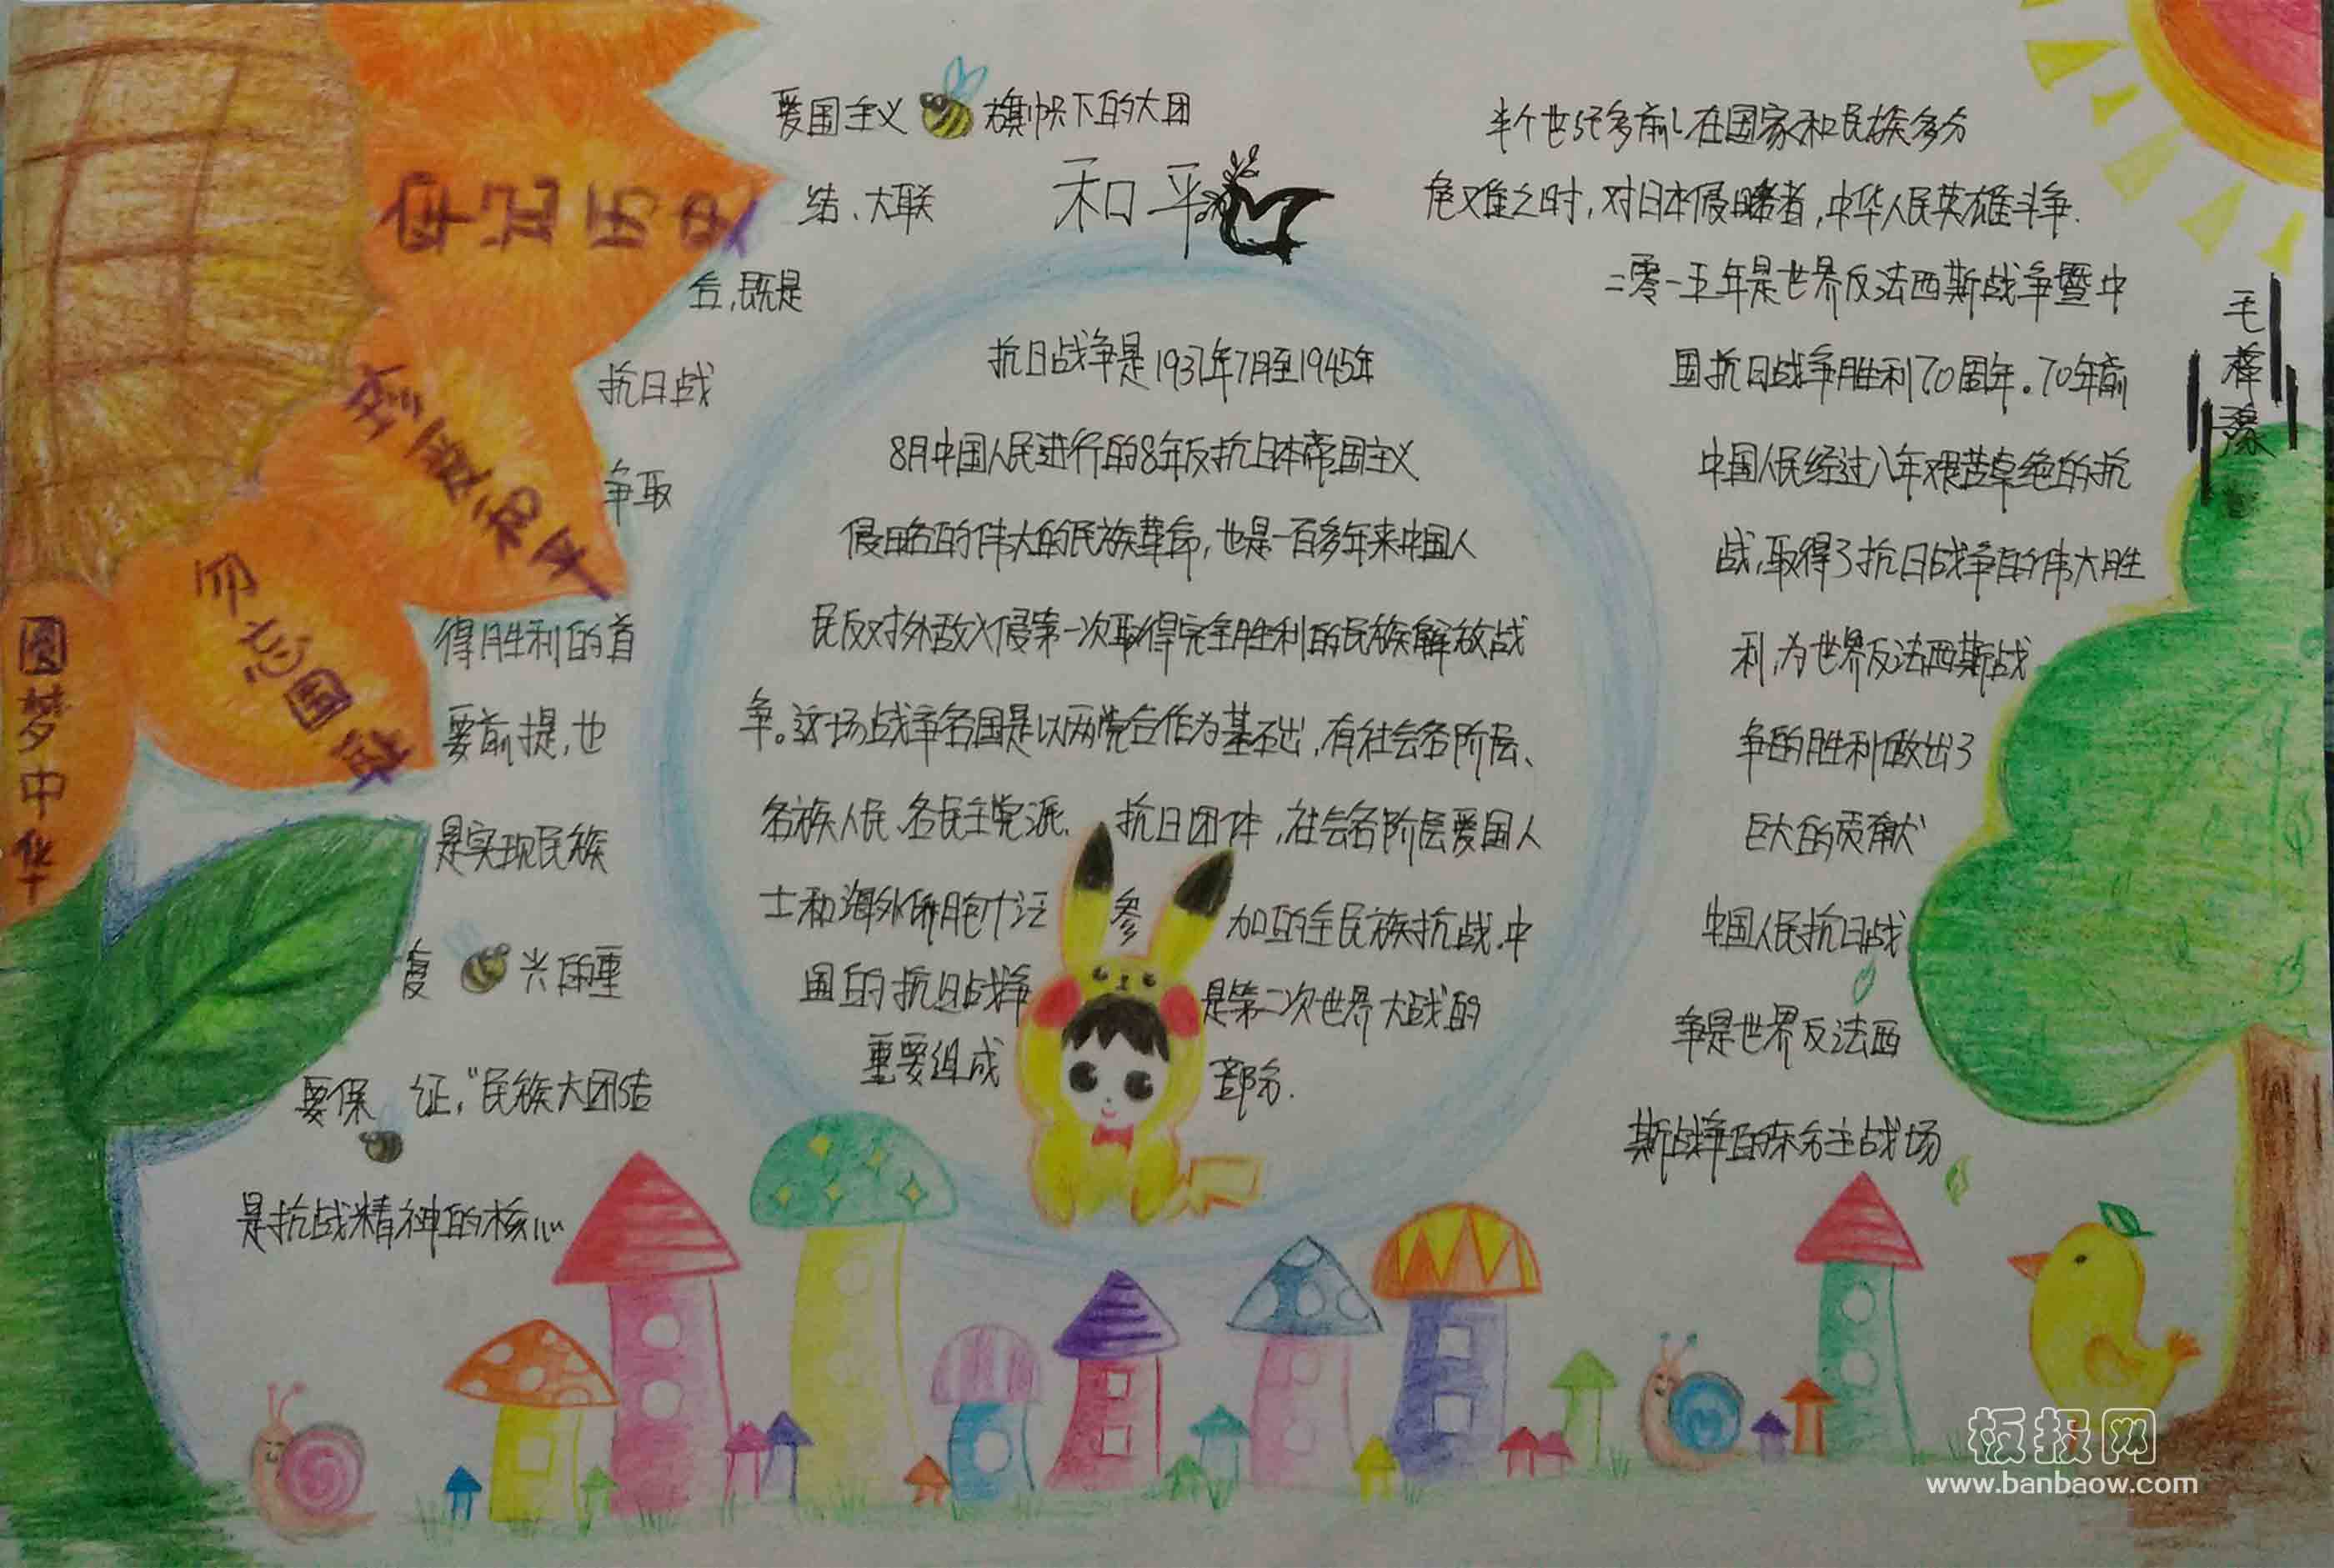 牢记历史
珍爱和平
勿忘国耻
圆梦中华
爱国主义旗帜下的大团
结、大联
合,既是
抗日战
争取
得胜利的首
要前提,也
是实现民族
复兴的重
要保证,“民族大团结
是抗战精神的核心
和平
抗日战争是1937年7月至1945年
8月中国人民进行的8年反抗日本帝国主义
侵略的伟大的民族革命,也是一百多年来中国人
民反对外敌入侵第一次取得完全胜利的民族解放战
争。这场战争各国是以两党合作为基础,有社会各阶层、
各族人民、各民主党派、抗日团体,社会各阶层爱国人
士和海外侨胞广泛参加的全民族抗战.中
国的抗日战争是第二次世界大战的
重要组成部分.
半个世纪多前,在国家和民族多方
危难之时,对日本侵略者,中华人民英雄斗争.
二零一五年是世界反法西斯战争暨中
国抗日战争胜利70周年。70年前
中国人民经过八年艰苦卓绝的抗
战,取得了抗日战争的伟大胜
利,为世界反法西斯战
争的胜利做出了
巨大的贡献
中国人民抗日战
争是世界反法西
斯战争的东方主战场
板报网
www.banbaow.com